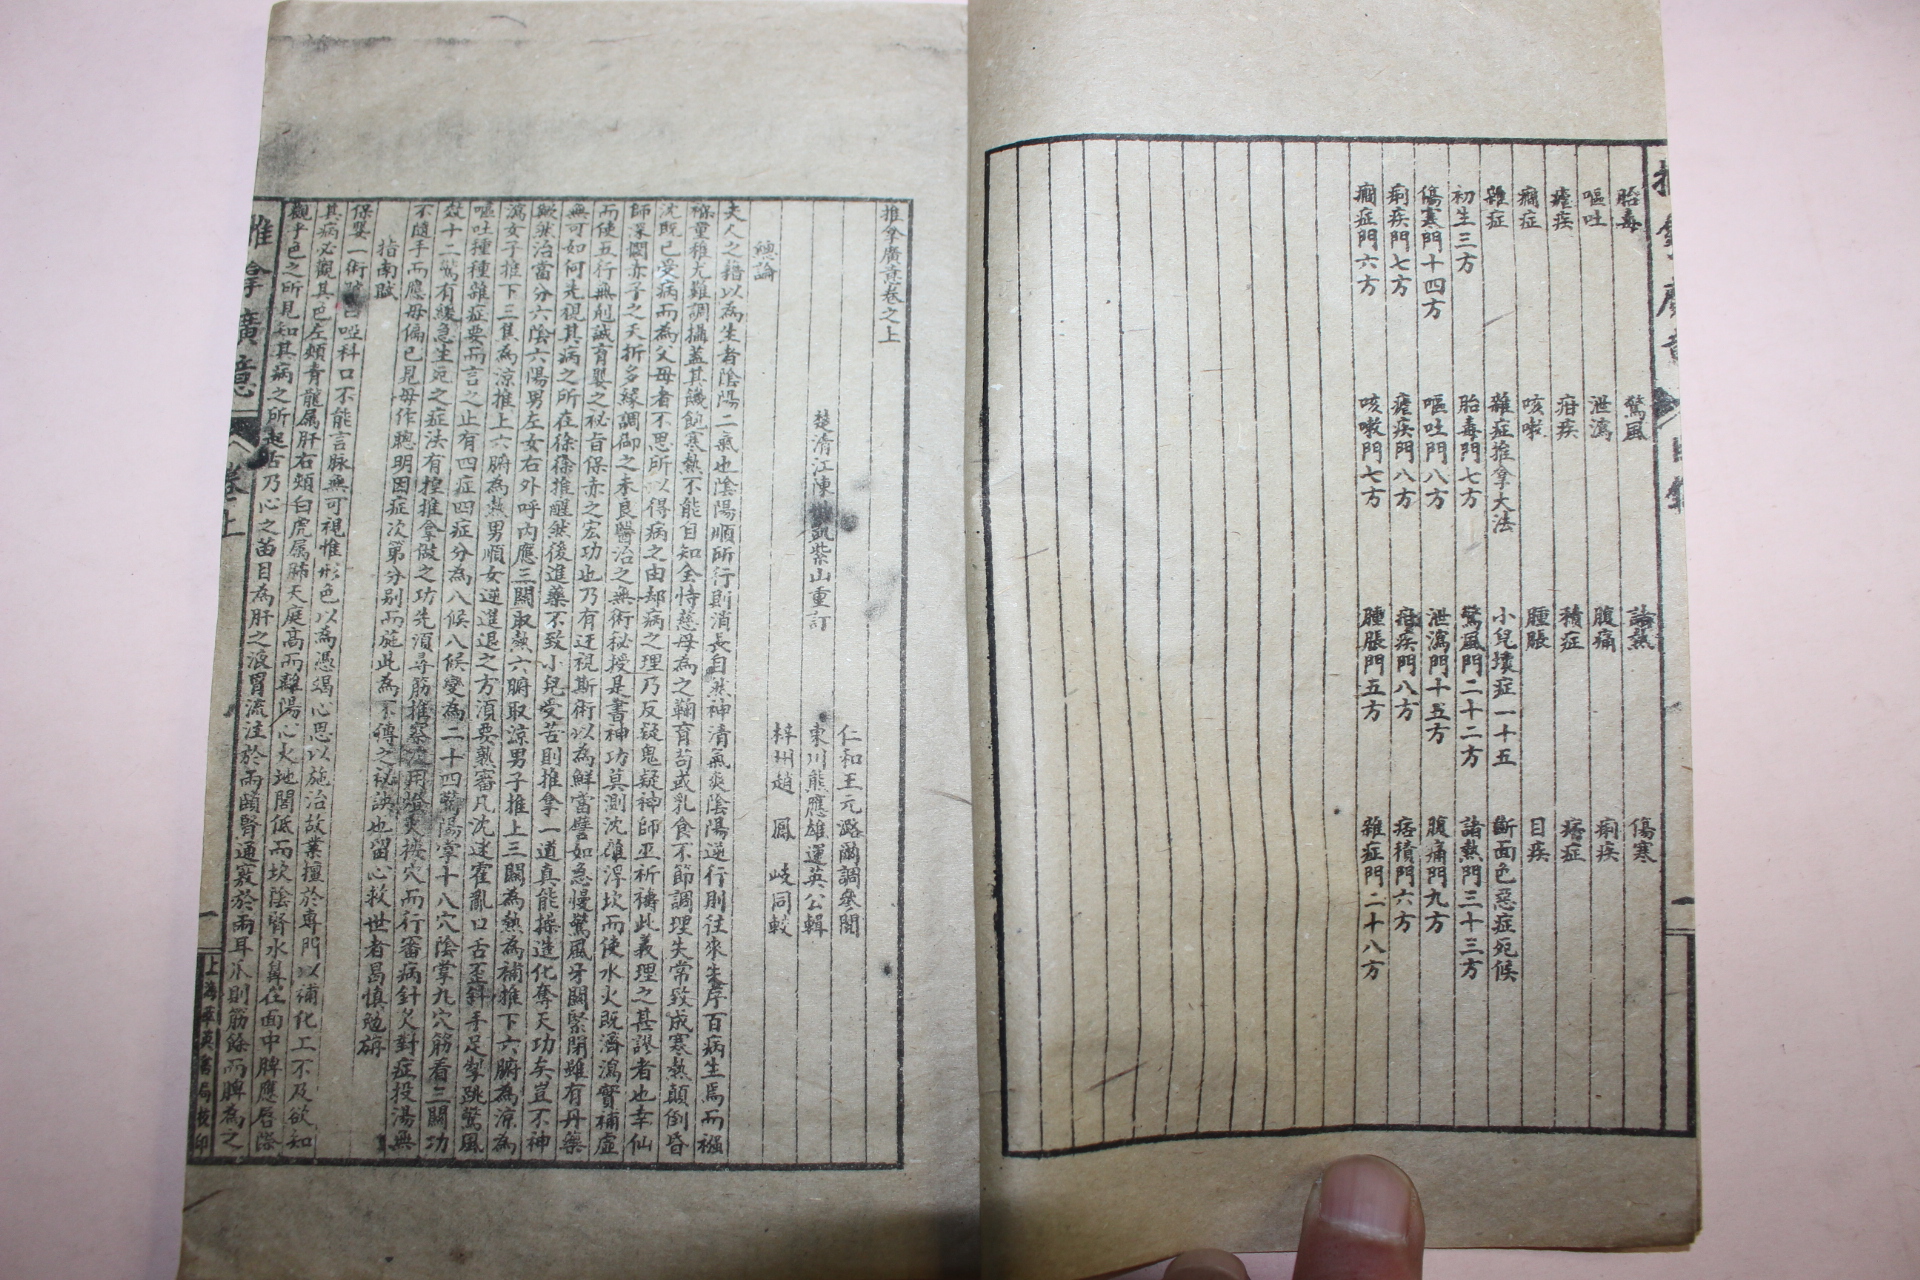 胎毒 驚風 諸熱 傷寒
嘔吐 泄瀉 腹痛 痢疾
瘧疾 疳疾 積症 痞症
癇症 咳嗽 腫脹 目疾
雜症 雜症推拿大法 小兒壞症一十五 斷面色惡症死候
初生三方 胎毒門七方 驚風門二十二方 諸熱門三十三方
傷寒門十四方 嘔吐門八方 泄瀉門十五方 腹痛門九方
痢疾門七方 瘧疾門八方 疳疾門八方 痞積門六方
癇症門六方 咳嗽門七方 腫脹門五方 雜症門二十八方
推拿廣意卷之上
仁和王元潞 調參閱
楚清江陳 紫山重訂 東川熊應雄運英公輯
梓州趙 鳳 岐同較
總論
夫人之藉以為生者陰陽二氣也陰陽順所行則消長自然神清氣爽陰陽逆行則往來失序百病生焉而襁
褓童稚尤難調攝蓋其饑飽寒熱不能自知全恃慈母為之鞠育苟或乳食不節調理失常致成寒熱顛倒昏
沈既已受病而為父母者不思所以得病之由却病之理乃反疑鬼疑神師巫祈禱此義理之甚謬者也幸仙
師深憫赤子之夭折多緣調御之未良醫治之無術秘授是書神功莫測沈離浮坎而使水火既濟瀉實補虛
而使五行無剋誠育嬰之秘旨保赤之宏功也乃有迂視斯術以為鮮當譬如急慢驚風牙關緊閉雖有丹藥
無可如何先視其病之所在徐徐推醒然後進藥不致小兒受苦則推拿一道真能操造化奪天功矣豈不神
歟然治當分六陰六陽男左女右外呼內應三關取熱六腑取涼男子推上三關為熱為補推下六腑為涼為
瀉女子推下三焦為涼推上六腑為熱男順女逆進退之方須要熟審凡沈迷霍亂口舌歪斜手足掣跳驚風
嘔吐種種雜症要而言之止有四症四症分為八候八候變為二十四驚陽掌十八穴陰掌九穴筋看三關功
效十二驚有緩急生死之症法有揑推拿做之功先須尋筋推察次用燈火按穴而行審病針灸對症投湯無
不隨手而應毋偏已見毋作聰明因症次第分别而施此為不傳之秘訣也留心救世者曷慎勉旃
指南賦
保嬰一術號曰啞科口不能言脉無可視惟形色以為憑竭心思以施治故業擅於專門以補化工不及欲知
其病必觀其色左頰青龍属肝右頰白虎属肺天庭高而離陽心火地閣低而坎陰腎水鼻在面中脾應唇際
觀乎色之所見知其病之所起舌乃心之苗目為肝之液胃流注於兩頤腎通竅於兩耳爪則筋餘而脾為之
推拿廣意 卷上 一